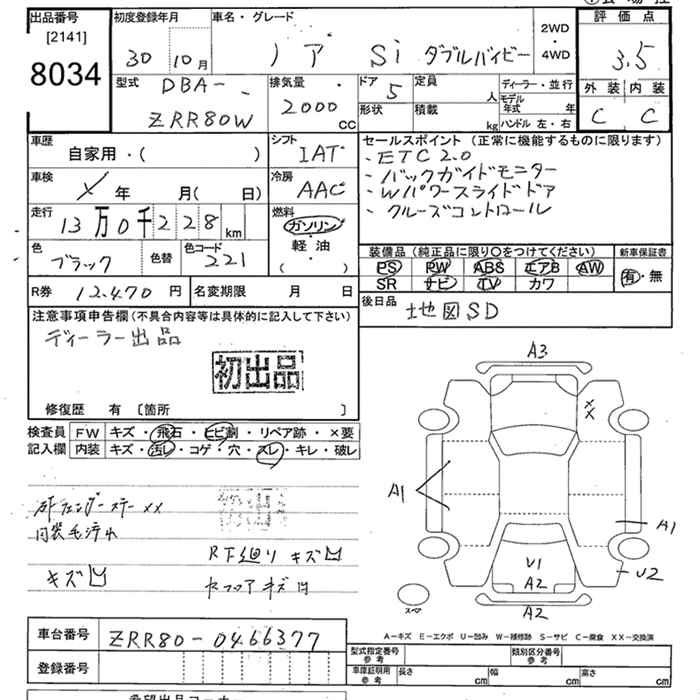 出品番号
[2141]
8034
初度登録年月
30 10月
車名・グレード
ノア Si ダブルバイビー
2WD
・
4WD
評価点
3.5
外装 内装
C C
型式 DBA-
ZRR80W
排気量
2000 cc
ドア 5
形状
定員 人
積載 kg
ディーラー・並行
モデル年式 年
ハンドル 左・右
車歴
自家用・( )
車検 年 月( 日)
走行 13万0千228 km
色 ブラック
色替
色コード 221
シフト IAT
冷房 AAC
燃料
ガソリン
・
軽油
( ・ )
セールスポイント (正常に機能するものに限ります)
・ETC2.0
・バックガイドモニター
・Wパワースライドドア
・クルーズコントロール
装備品 (純正品に限り○をつけてください)
PS PW ABS エアB AW
SR ナビ TV カワ
新車保証書
有・無
R券 12,470 円
名変期限 月 日
後日品 地図SD
注意事項申告欄(不具合内容等は具体的に記入して下さい)
ディーラー出品
初出品
修復歴 有 [箇所 ]
検査員記入欄
FW キズ・飛石・ヒビ割・リペア跡・×要
内装 キズ・汚レ・コゲ・穴・スレ・キレ・破レ
内装毛汚れ
キズ
R下廻りキズ
A3
XX
A1
A1
U1
A2
U2
A2
スペア
A-キズ E-エクボ U-凹み W-補修跡 S-サビ C-腐食 XX-交換済
車台番号 ZRR80-0466377
登録番号
型式指定番号 参考
類別区分番号 参考
車庫証明用 参考
長さ cm
幅 cm
高さ cm